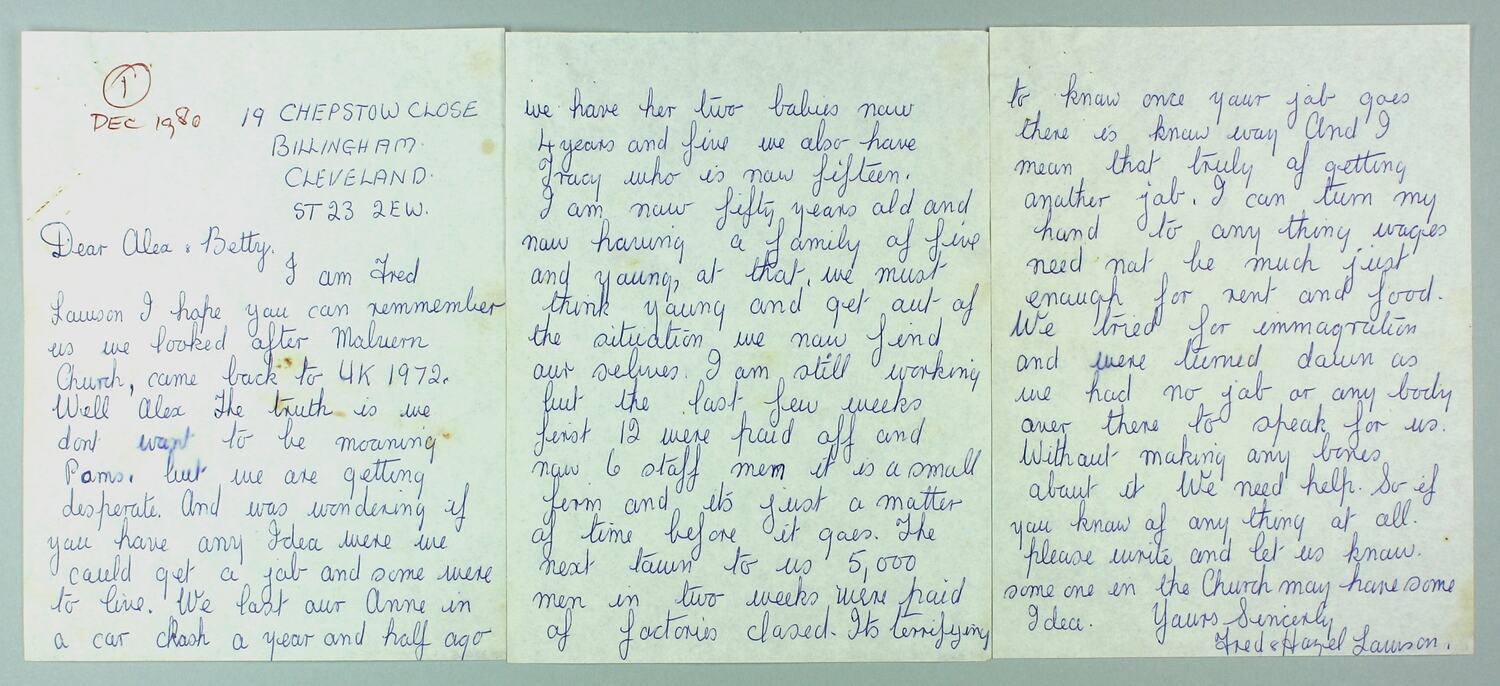 1
DEC 1980
19 CHEPSTOW CLOSE
BILLINGHAM.
CLEVELAND.
ST23 2EW.
Dear Alex & Betty.
I am Fred
Lawson I hope you can remmember
us we looked after Malvern
Church, came back to UK 1972.
Well Alex The truth is we
dont want to be moaning
Poms. but we are getting
desperate. And was wondering if
you have any Idea were we
could get a job and some were
to live. We lost our Anne in
a car crash a year and half ago
we have her two babies now
4 years and five we also have
Tracy who is now fifteen.
I am now fifty years old and
now having a family of five
and young, at that, we must
think young and get out of
the situation we now find
our selves. I am still working
but the last few weeks
first 12 were paid off and
now 6 staff men it is a small
ferm and its just a matter
of time before it goes. The
next town to us 5,000
men in two weeks were paid
of factories closed. Its terrifying
to know once your job goes
there is know way And I
mean that truly of getting
another job. I can turn my
hand to any thing wages
need not be much just
enough for rent and food.
We tried for immagration
and were turned down as
we had no job or any body
over there to speak for us.
Without making any bones
about it We need help. So if
you know of any thing at all.
please write and let us know.
some one en the Church may have some
Idea. Yours Sincerly
Fred & Hazel Lawson.